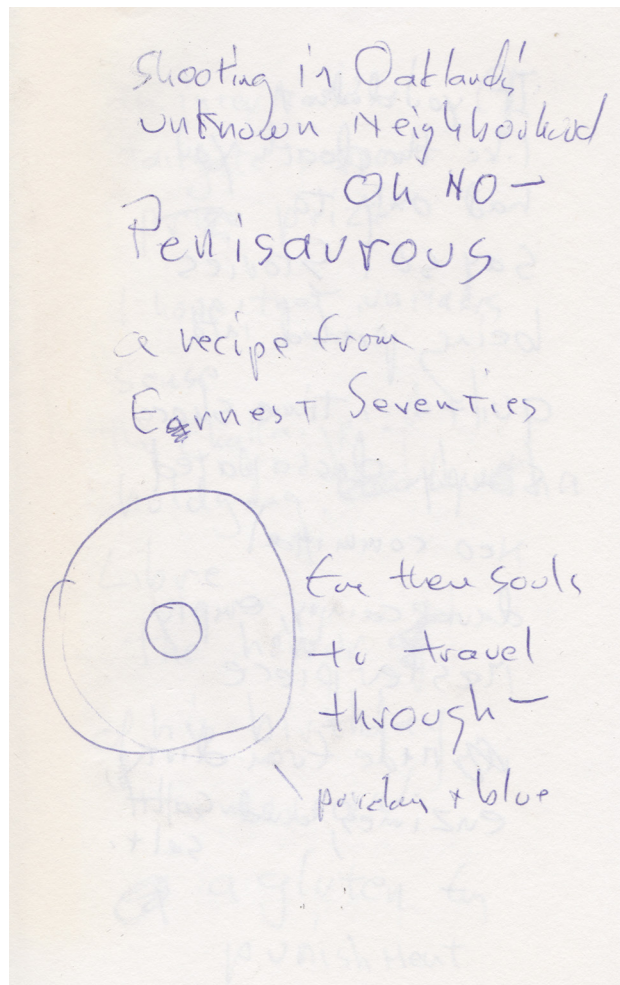 Shooting in Oakland's
unknown Neighborhood
Oh NO —
Penisaurous
a recipe from
Earnest Seventies
For then souls
to travel
through —
+ blue